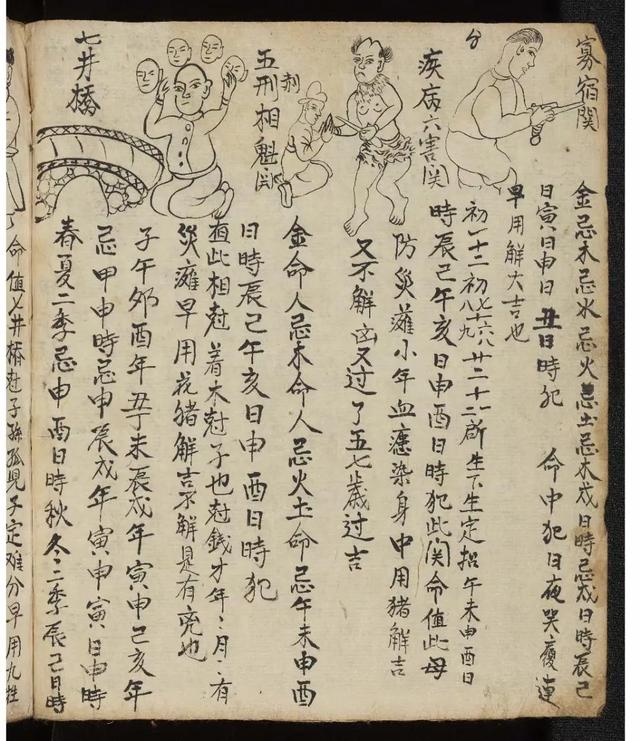 寡宿関
金忌木忌水忌火忌土忌木戍日時忌戍日時辰己
日寅日申日丑日時犯 命中犯日夜哭癭連
早用解大吉也
疾病六害関
初一十二初七十六八廿二十八所生下生定招午未申酉日
八九
時辰己午亥日申酉日時犯此関命值此母
防災瀶小年血瘪染身中用猪解吉
又不解凶又过了五七歲过吉
五刑相魁関
剋
金命人忌木命人忌火土命忌午未申酉
日時辰己午亥日申酉日時犯
值此相尅着木尅子也尅銭才年〻月〻有
災瀶早用花猪解吉不解是有兇也
七井橋
子午夘酉年丑丁未辰戍年寅申己亥年
忌甲申時忌申辰戍年寅申寅日申時
春夏二季忌申酉日時秋冬二季辰己日時
命值七井橋尅子孫孤児子定难分早用九牲